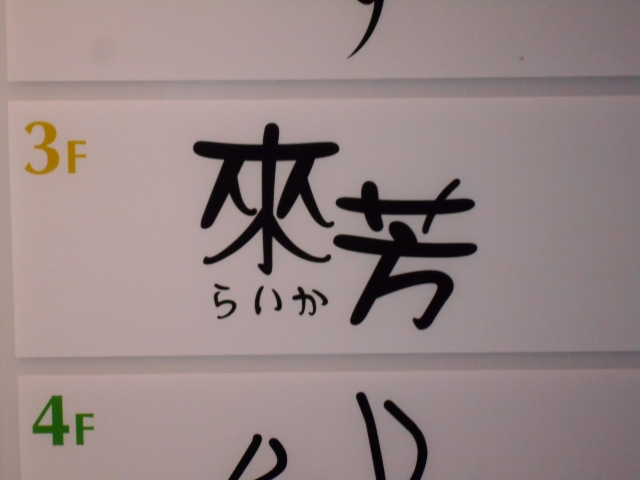 3F
來芳
らいか
4F